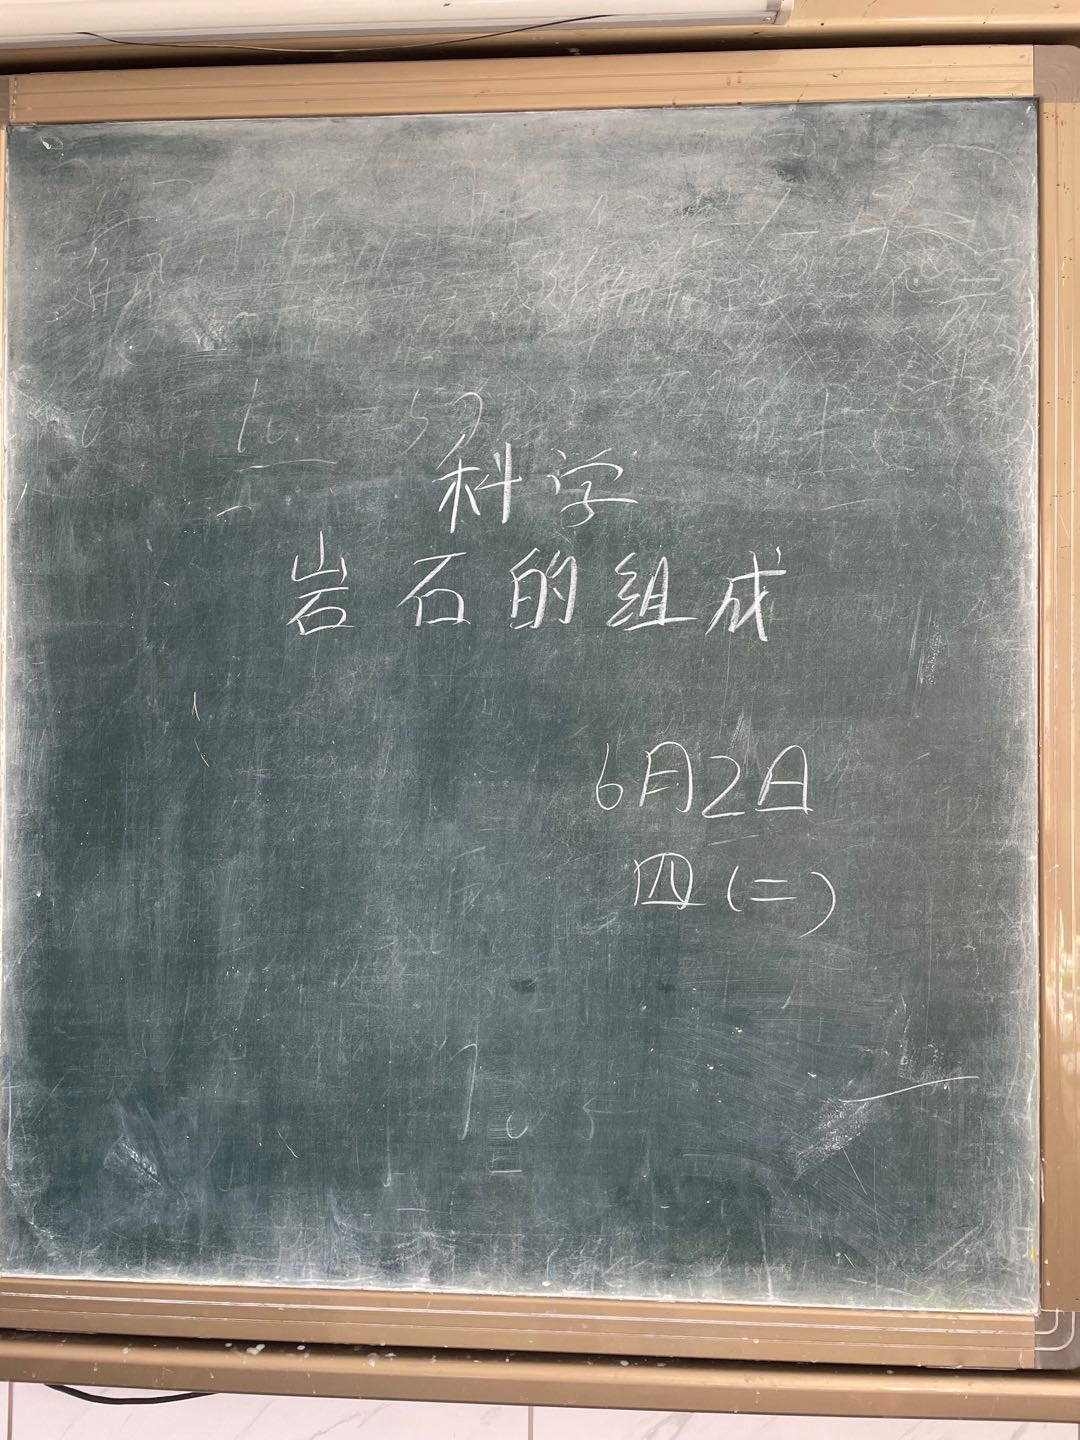 科学
岩石的组成
6月2日
四(二)